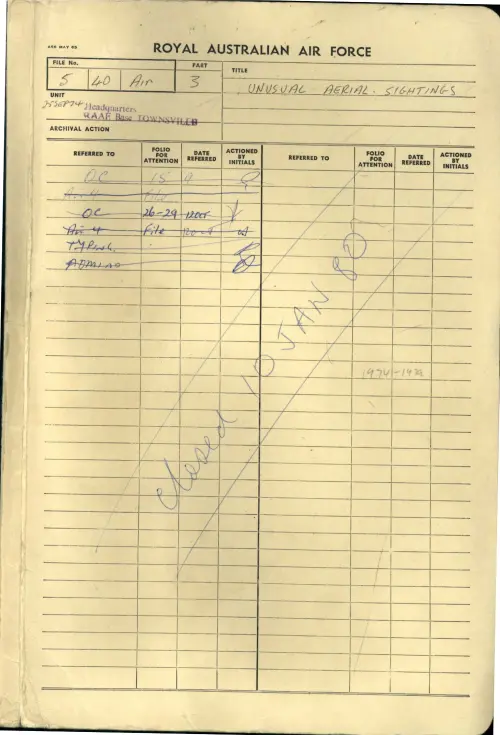 A50 MAY 65
ROYAL AUSTRALIAN AIR FORCE
FILE No. PART TITLE
5 40 Air 3 UNUSUAL AERIAL SIGHTINGS
UNIT
25SEP74 Headquarters
RAAF Base TOWNSVILLE
ARCHIVAL ACTION
REFERRED TO FOLIO FOR ATTENTION DATE REFERRED ACTIONED BY INITIALS REFERRED TO FOLIO FOR ATTENTION DATE REFERRED ACTIONED BY INITIALS
OC 15 9
File
OC 26-29 12OCT
Air 4 File
TYPING
Closed 10 JAN 80
1974-19